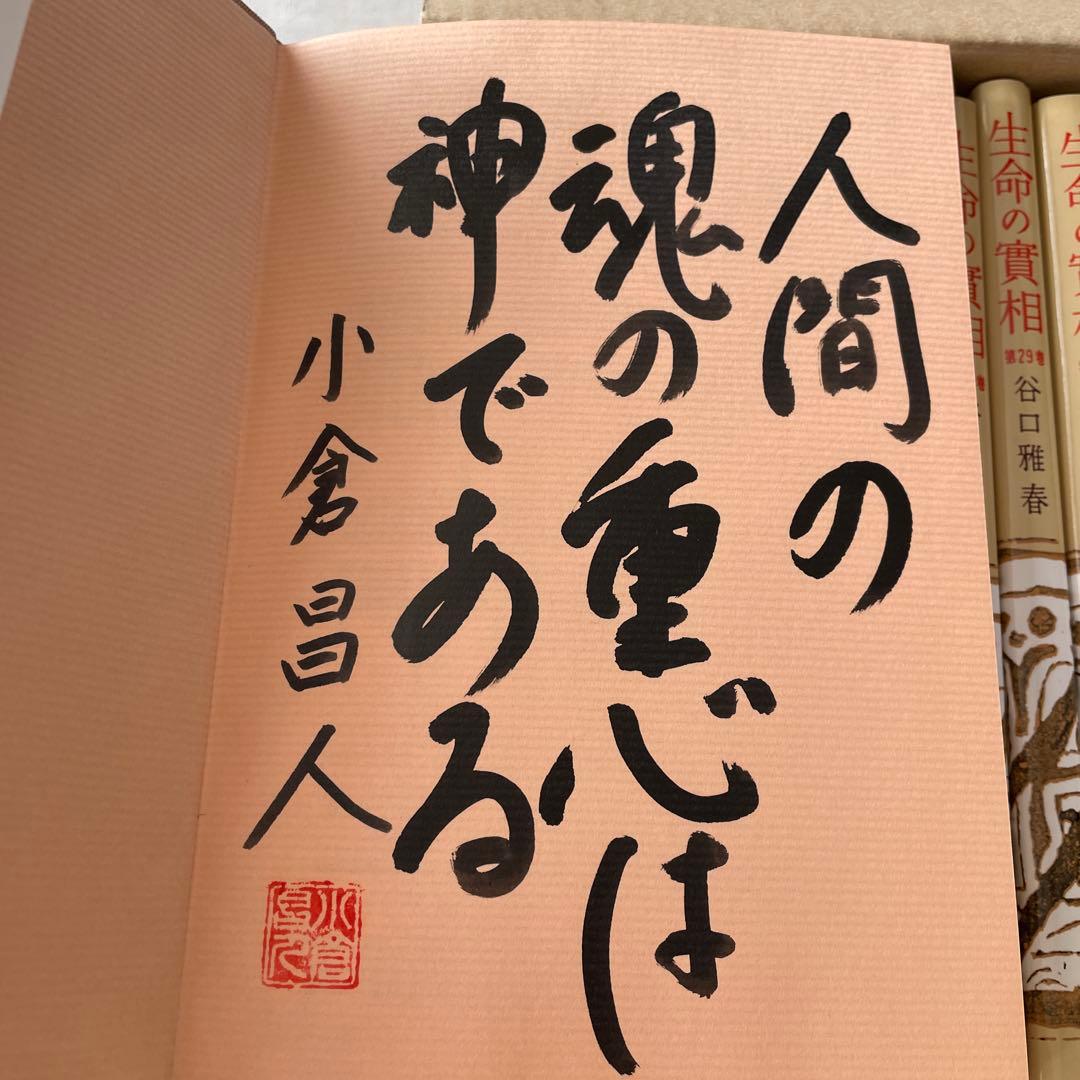 人間の
魂の重心は
神である
小倉昌人
小倉昌人
生命の實相
第29巻
谷口雅春
生命の實相
生命の實相